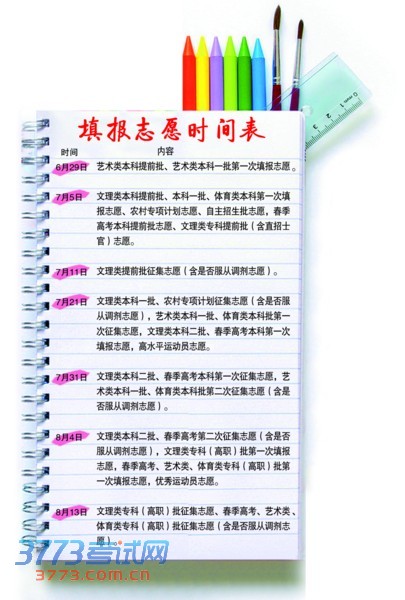 填报志愿时间表
时间 内容
6月29日 艺术类本科提前批、艺术类本科一批第一次填报志愿。
7月5日 文理类本科提前批、本科一批、体育类本科第一次填
报志愿、农村专项计划志愿、自主招生批志愿，春季
高考本科提前批志愿、文理类专科提前批（含直招士
官）志愿。
7月11日 文理类提前批征集志愿（含是否服从调剂志愿）。
7月21日 文理类本科一批、农村专项计划征集志愿（含是否服
从调剂志愿），艺术类本科一批、体育类本科批第一
次征集志愿，文理类本科二批、春季高考本科第一次
填报志愿，高水平运动员志愿。
7月31日 文理类本科二批、春季高考本科第一次征集志愿，艺
术类本科一批、体育类本科批第二次征集志愿（含是
否服从调剂志愿）。
8月4日 文理类本科二批、春季高考第二次征集志愿（含是否
服从调剂志愿），文理类专科（高职）批第一次填报
志愿，春季高考、艺术类、体育类专科（高职）批第
一次填报志愿，优秀运动员志愿。
8月13日 文理类专科（高职）批征集志愿、春季高考、艺术类、
体育类专科（高职）批征集志愿（含是否服从调剂志
愿）
3773考试网
3773.com.cn